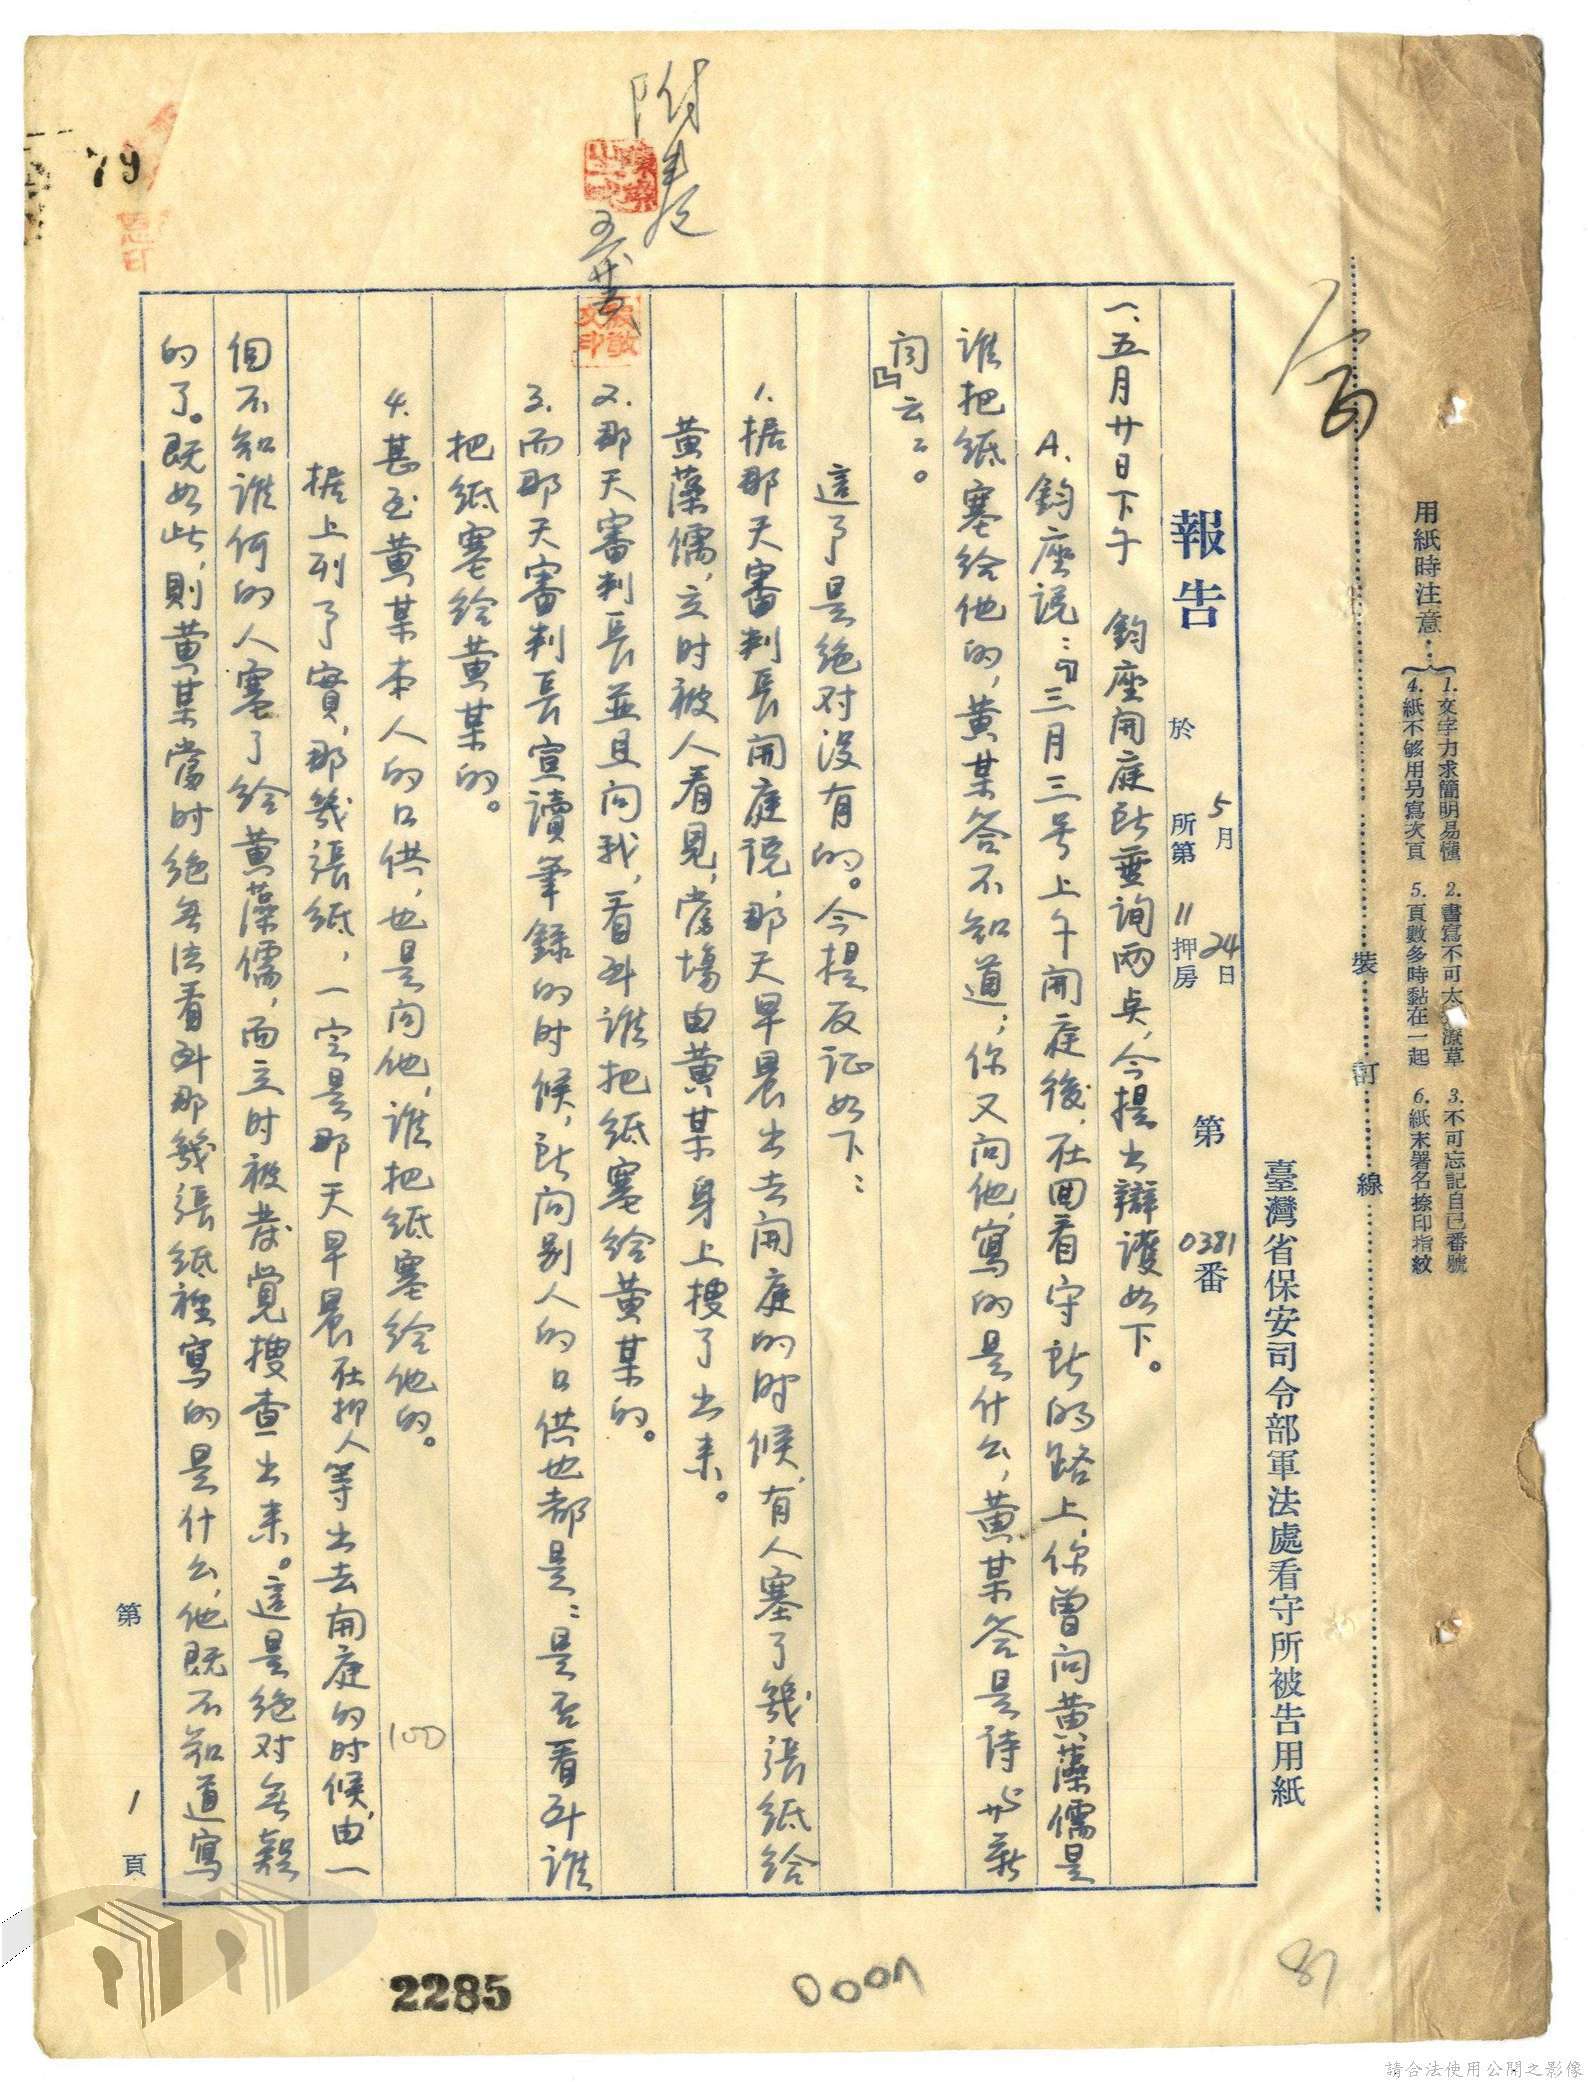 用紙時注意：
1.文字力求簡明易懂 2.書寫不可太潦草 3.不可忘記自己番號
4.紙不够用另寫次頁 5.頁數多時黏在一起 6.紙末署名捺印指紋
裝訂線
臺灣省保安司令部軍法處看守所被告用紙
報告 5月24日 於 所第11押房 第0381番
一、五月廿日下午 鈞座開庭所垂詢兩点，今提出辯護如下。
A.鈞座说：『三月三号上午開庭後，在回看守所的路上，你曾问黄藻儒是
谁把纸塞给他的，黄某答不知道；你又问他，寫的是什么，黄某答是诗与新
闻』云云。
這了是绝对没有的。今提反证如下：
1.据那天審判長開庭说，那天早晨出去開庭的时候，有人塞了幾張纸给
黄藻儒，立时被人看見，當場由黄某身上搜了出来。
2.那天審判長並且问我，看到谁把纸塞给黄某的。
3.而那天審判長宣讀筆錄的时候，所问别人的口供也都是：是否看到谁
把纸塞给黄某的。
4.甚至黄某本人的口供，也是问他，谁把纸塞给他的。
据上列了實，那幾張纸，一定是那天早晨在押人等出去開庭的时候，由一
個不知谁何的人塞了给黄藻儒，而立时被发觉搜查出来。這是绝对無疑
的了。既如此，則黄某當时绝無法看到那幾張纸裡寫的是什么，他既不知道寫
第1頁
附卷
79
100
2285
87
請合法使用公開之影像